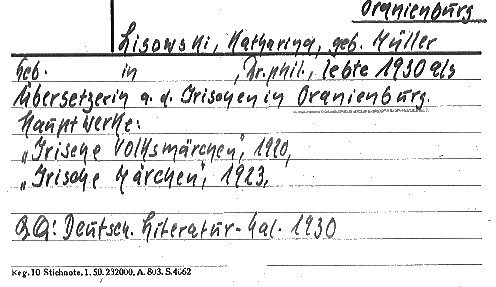 Oranienburg
Lisowski, Katharina, geb. Müller
Geb. in , Dr. phil., lebte 1930 als
Übersetzerin a. d. Irischen in Oranienburg.
Hauptwerke:
„Irische Volksmärchen", 1920,
„Irische Märchen", 1923,
QQ: Deutsch. Literatur-Kal. 1930
Reg. 10 Stichnote. 1. 50. 232000. A. 803. S. 4662